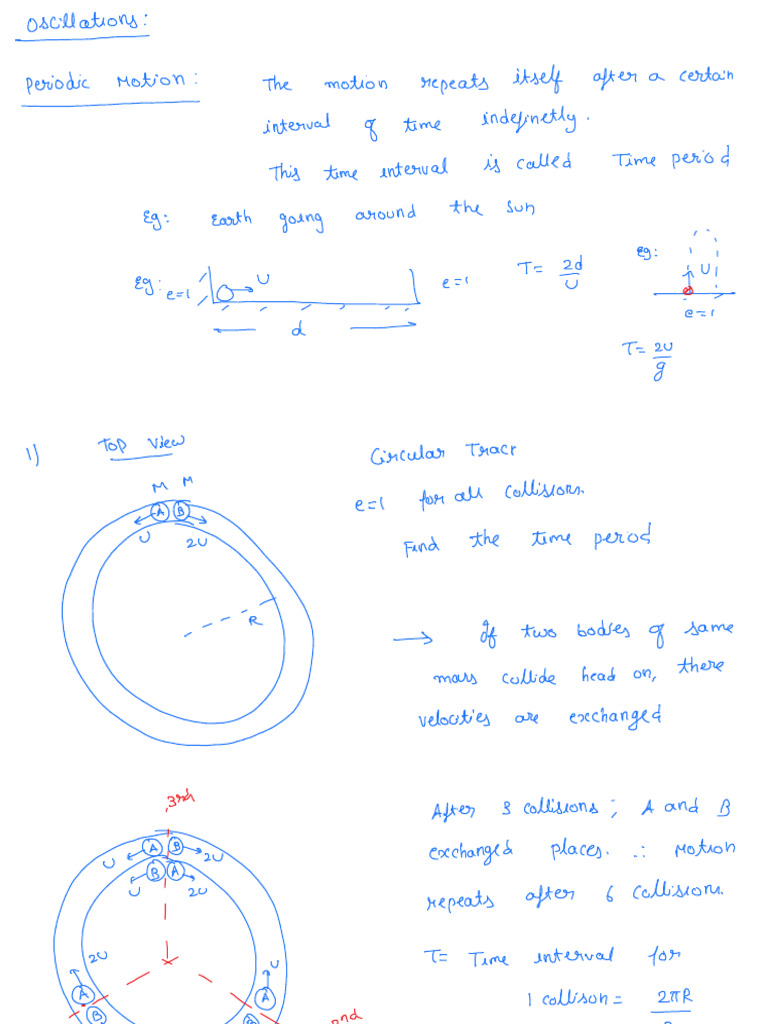 Oscillations:
Periodic Motion: The motion repeats itself after a certain
interval of time indefinetly.
This time interval is called Time period
Eg: Earth going around the sun
Eg: e=1 U e=1 T= 2d/U
d
eg: U
e=1
T= 2U/g
1) Top View
M M
A B
U 2U
R
Circular Track
e=1 for all collisions.
Find the time period
→ If two bodies of same
mass collide head on, there
velocities are exchanged
3rd
U A B 2U
B A
U 2U
2U U
A A
B B
2nd
After 3 collisions; A and B
exchanged places. ∴ Motion
repeats after 6 collisions.
T= Time interval for
1 collison = 2πR